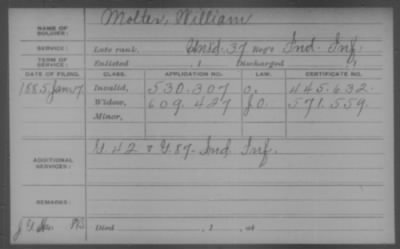 NAME OF SOLDIER: Molter, William
SERVICE: Late rank, Unas. 37 Reg't Ind. Inf.
TERM OF SERVICE: Enlisted , 1 Discharged , 1
DATE OF FILING. CLASS. APPLICATION NO. LAW. CERTIFICATE NO.
1885 Jan. 7 Invalid, 530.307 445.632.
Widow, 609.427 571.559.
Minor,
ADDITIONAL SERVICES: G 42 & G. 87. Ind. Inf.
REMARKS:
Died , 1 , at